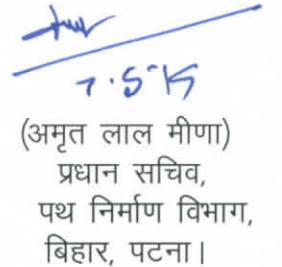 7.5.15
(अमृत लाल मीणा)
प्रधान सचिव,
पथ निर्माण विभाग,
बिहार, पटना।